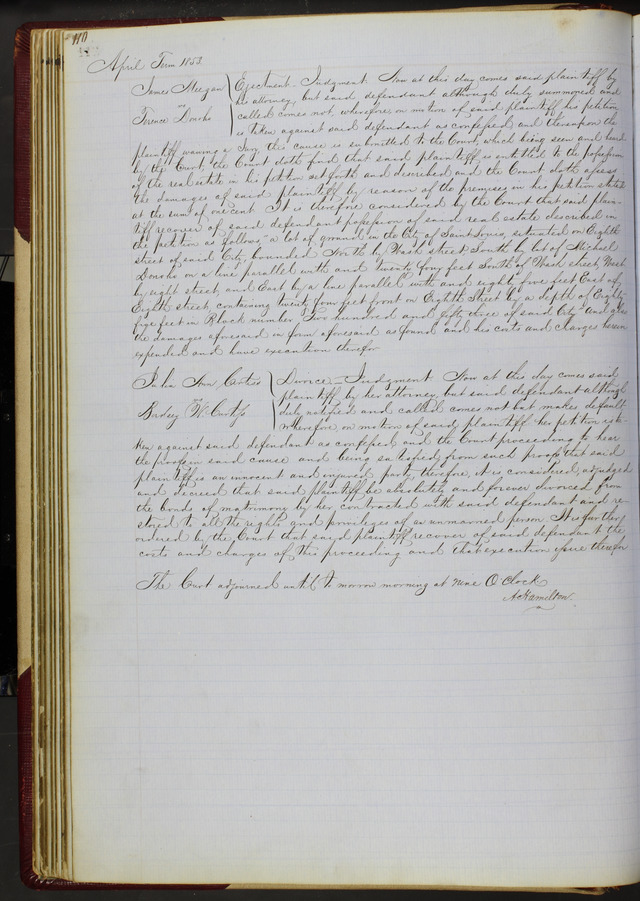 110
April Term 1853
James Meegan } Ejectment. Judgment. Now at this day comes said plaintiff by
vs his attorney, but said defendant although duly summoned and
Terence Doroho called comes not, wherefore on motion of said plaintiff his petition
is taken against said defendant as confessed and thereupon the
plaintiff waiving a Jury this cause is submitted to the Court, which being seen and heard
by the Court, the Court doth find that said plaintiff is entitled to the possession
of the real estate in his petition set forth and described and the Court doth assess
the damages of said plaintiff by reason of the premises in his petition stated
at the sum of one cent. It is therefore considered by the Court that said plain-
tiff recover of said defendant possession of said real estate described in
the petition as follows, "a lot of ground in the City of Saint Louis, situated on Eighth
street of said City, bounded North by Wash street, South by lot of Michael
Doroho on a line parallel with and twenty four feet South of Wash street, West
by eight street, and East by a line parallel with and eighty five feet East of
Eighth street, containing twenty four feet front on Eighth Street by a depth of Eighty
five feet in Block number Two hundred and fifty three of said City" and also
the damages aforesaid in form aforesaid as found and his costs and charges herein
expended and have execution therefor
Julia Ann Curtiss } Divorce — Judgment. Now at this day comes said
vs plaintiff by her attorney, but said defendant although
W. Curtiss duly notified and called comes not but makes default
wherefore, on motion of said plaintiff her petition is ta-
ken against said defendant as confessed and the Court proceeding to hear
the proofs in said cause and being satisfied from such proofs that said
plaintiff is an innocent and injured party, therefore, it is considered, adjudged
and decreed that said plaintiff be absolutely and forever divorced from
the bonds of matrimony by her contracted with said defendant and re-
stored to all the rights and privileges of an unmarried person. It is further
ordered by the Court that said plaintiff recover of said defendant the
costs and charges of this proceeding and that execution issue therefor
The Court adjourned until to morrow morning at nine O Clock
A Hamilton